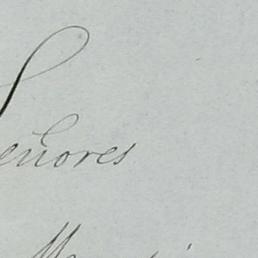 Señores